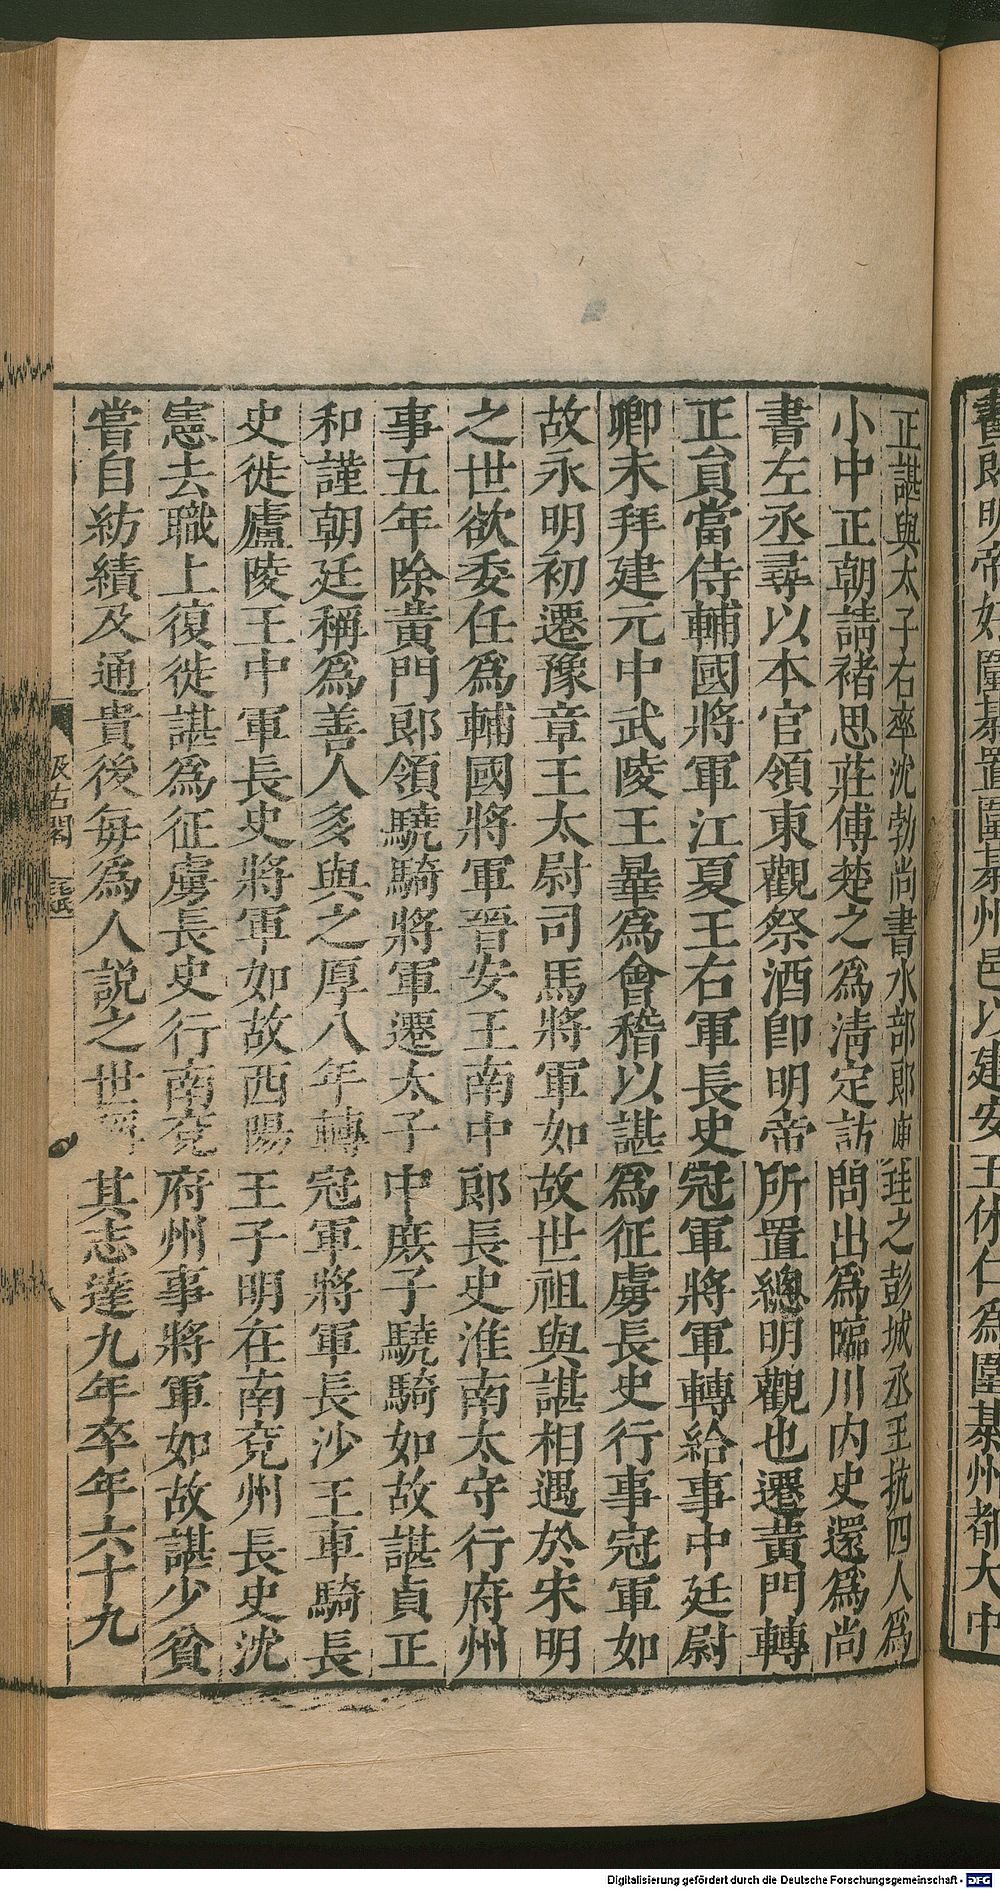 書郎明帝好圍棊置圍棊州邑以建安王休仁為圍棊州都大中
正諶與太子右率沈勃尚書水部郎庾珪之彭城丞王抗四人爲
小中正朝請褚思莊傅楚之為淸定訪問出爲臨川内史還爲尚
書左丞尋以本官領東觀祭酒卽明帝所置總明觀也遷黄門轉
正員當侍輔國將軍江夏王右軍長史冠軍將軍轉給事中廷尉
卿未拜建元中武陵王曅爲會稽以諶爲征虜長史行事冠軍如
故永明初遷豫章王太尉司馬將軍如故世祖與諶相遇於宋明
之世欲委任爲輔國將軍晉安王南中郎長史淮南太守行府州
事五年除黄門郎領驍騎將軍遷太子中庶子驍騎如故諶貞正
和謹朝廷稱爲善人多與之厚八年轉冠軍將軍長沙王車騎長
史徙廬陵王中軍長史將軍如故西陽王子明在南兗州長史沈
憲去職上復徙諶爲征虜長史行南兗府州事將軍如故諶少貧
嘗自紡績及通貴後每爲人說之世稱其志達九年卒年六十九
汲古閣
Digitalisierung gefördert durch die Deutsche Forschungsgemeinschaft - DFG